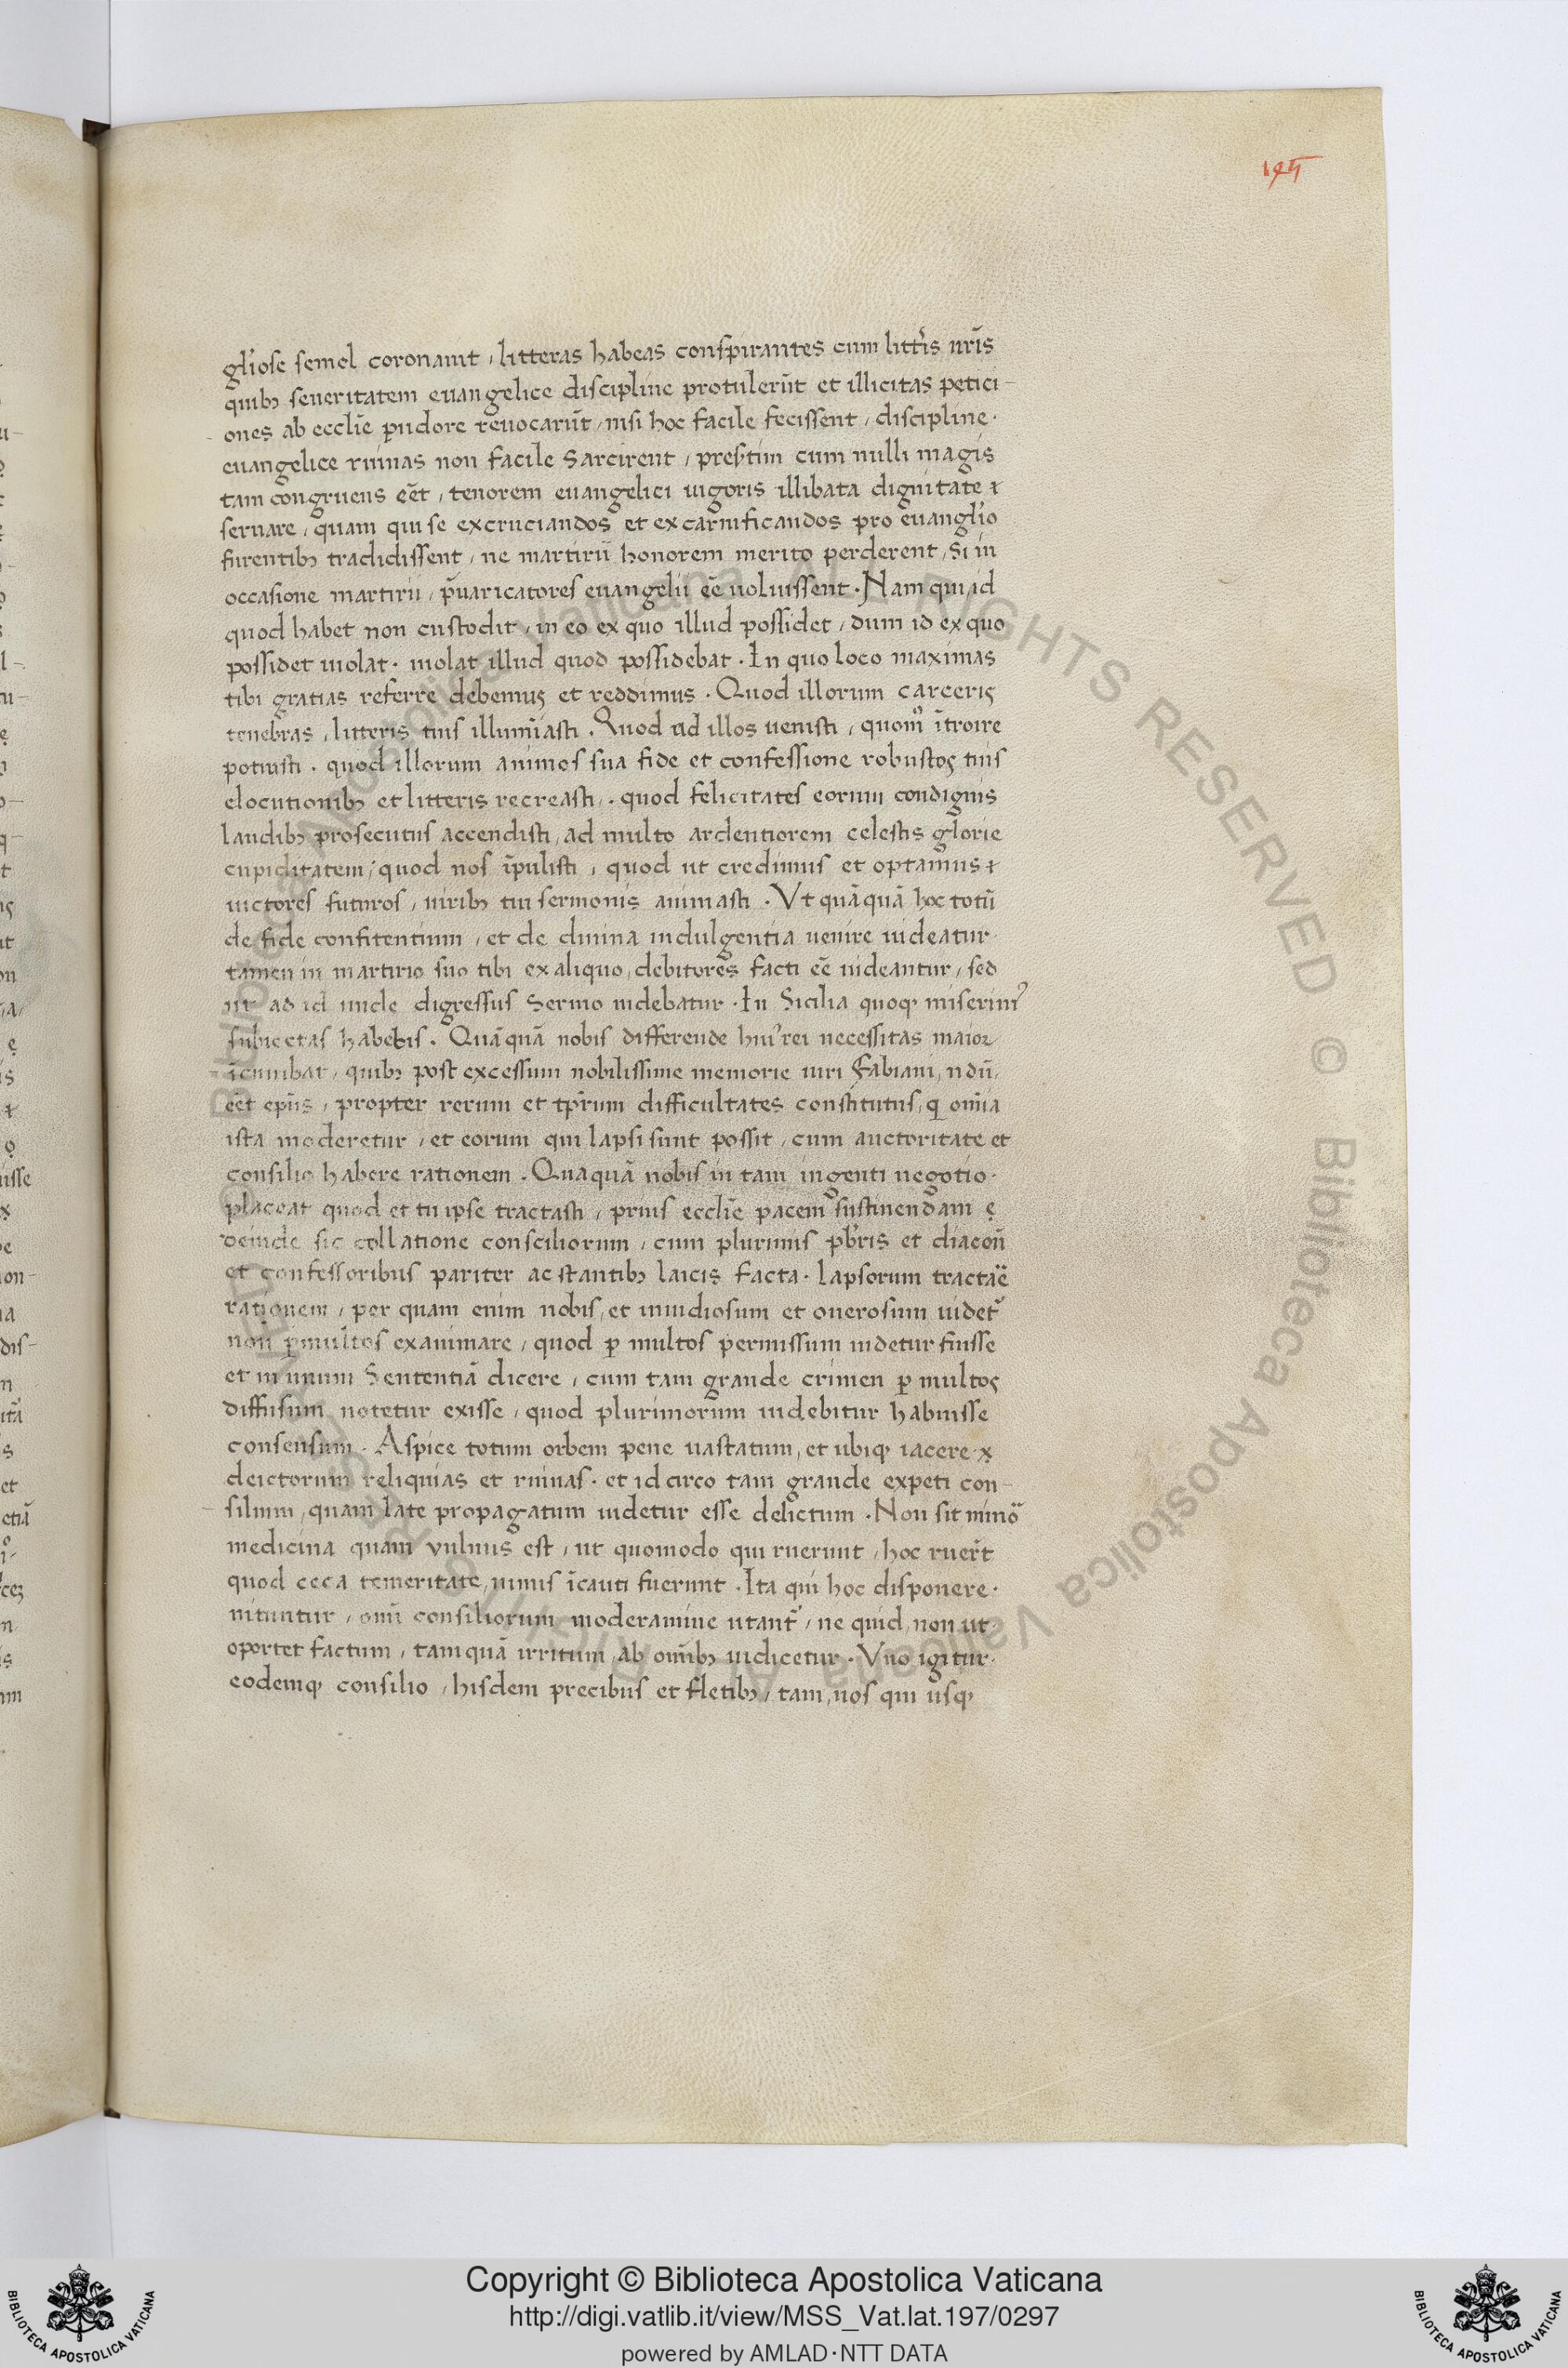 145
gl'iose semel coronauit, litteras habeas conspirantes cum litt'is nr̄is
q̄uibꝫ seueritatem euangelice discipline protulerūt et illicitas petici-
ones ab eccl'ie pudore reuocarūt, nisi hoc facile fecissent, discipline.
euangelice ruinas non facile sarcirent, presʼtim cum nulli magis
tam congruens eēt, tenorem euangelici uigoris illibata dignitate
seruare, quam qui se excruciandos et excarnificandos pro euangl'io
furentibꝫ tradidissent, ne martirū honorem merito perderent, si in
occasione martirii, p̄uaricatores euangelii eē uoluissent. Nam qui id
quod habet non custodit, in eo ex quo illud possidet, dum id ex quo
possidet uiolat. uiolat illud quod possidebat. In quo loco maximas
tibi gratias referre debemus et reddimus. Quod illorum carceris
tenebras, litteris tuis illumīasti. Quod ad illos uenisti, quomº ītroire
potuisti. quod illorum animos sua fide et confessione robustos tuis
elocutionibꝫ et litteris recreasti. quod felicitates eorum condignis
laudibꝫ prosecutus accendisti, ad multo ardentiorem celestis glorie
cupiditatem, quod nos īpulisti, quod ut credimus et optamus
uictores futuros, uiribꝫ tui sermonis animasti. Vt quāquā hoc totū
de fide confitentium, et de diuina indulgentia uenire uideatur.
tamen in martirio suo tibi ex aliquo, debitores facti eē uideantur, sed
ut ad id unde digressus sermo uidebatur. In Sicilia quoqꝫ miserimꝰ
subiectas habebis. Quāquā nobis differende huiꝰ rei necessitas maior
īcumbat, quibꝫ post excessum nobilissime memorie uiri Fabiani, ndū,
eēt ep̄us, propter rerum et tp̄rum difficultates constitutus, q om̄ia
ista moderetur, et eorum qui lapsi sunt possit, cum auctoritate et
consilio habere rationem. Quaquā nobis in tam ingenti negotio.
placeat quod et tu ipse tractasti, prius eccl'ie pacem sustinendam ę
deinde sic collatione consciliorum, cum plurimis pb'ris et diacon̄
et confessoribus pariter ac stantibꝫ laicis facta. lapsorum tractar̄e
rationem, per quam enim nobis, et inuidiosum et onerosum uidetʼ
non ꝑ multos examinare, quod ꝑ multos permissum uidetur fuisse
et in unum Sententiā dicere, cum tam grande crimen ꝑ multos
diffusum notetur exisse, quod plurimorum uidebitur habuisse
consensum. Aspice totum orbem pene uastatum, et ubiqꝫ iacere
deiectorum reliquias et ruinas. et id circo tam grande expeti con-
silium, quam late propagatum uidetur esse delictum. Non sit mino͂
medicina quam vulnus est, ut quomodo qui ruerunt, hoc ruer̄t
quod ceca temeritate, nimis īcauti fuerunt. Ita qui hoc disponere.
nituntur, omī consiliorum moderamine utantʼ, ne quid, non ut.
oportet factum, tamquā irritum, ab om̄ibꝫ iudicetur. Vno igitur.
eodemqꝫ consilio, hisdem precibus et fletibꝫ, tam, nos qui usqꝫ
Copyright © Biblioteca Apostolica Vaticana
http://digi.vatlib.it/view/MSS_Vat.lat.197/0297
powered by AMLAD·NTT DATA